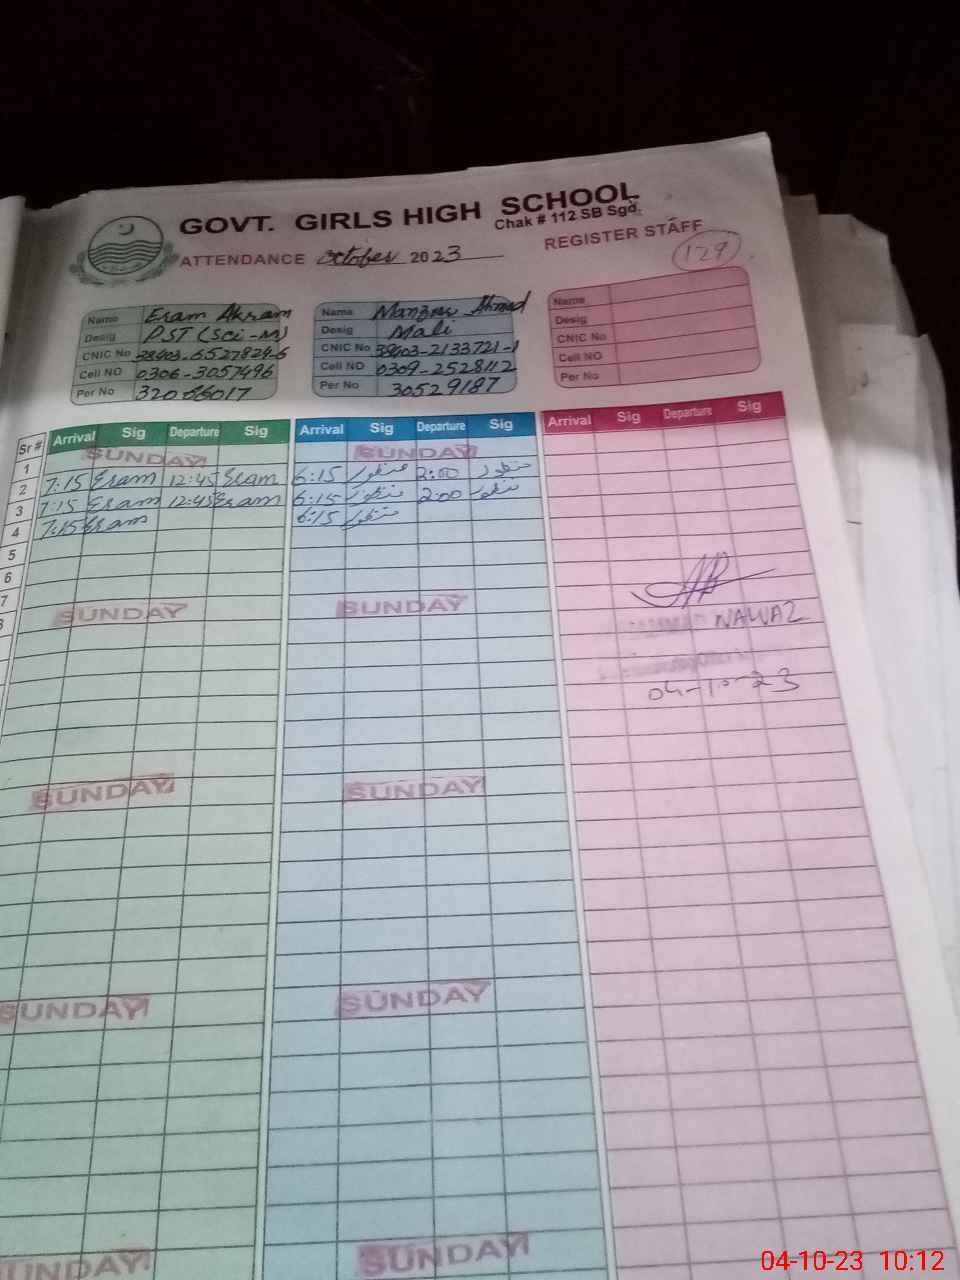 GOVT. GIRLS HIGH SCHOOL
Chak # 112 SB Sgd.
ATTENDANCE October 2023 REGISTER STAFF
129
Name Eram Akram
Desig PST (Sci-M)
CNIC No 38403-6527829-6
Cell NO 0306-3057496
Per No 32066017
Name Manzoor Ahmed
Desig Mali
CNIC No 38403-2133721-1
Cell NO 0309-2528112
Per No 30529187
Name
Desig
CNIC No
Cell NO
Per No
Sr # Arrival Sig Departure Sig Arrival Sig Departure Sig Arrival Sig Departure Sig
1 SUNDAY SUNDAY
2 7:15 Eram 12:45 Eram 6:15 منظور 2:00 منظور
3 7:15 Eram 12:45 Eram 6:15 منظور 2:00 منظور
4 7:15 Eram 6:15 منظور
5
6
7
8 SUNDAY SUNDAY
NAWAZ
04-10-23
SUNDAY SUNDAY
SUNDAY SUNDAY
SUNDAY SUNDAY
04-10-23 10:12